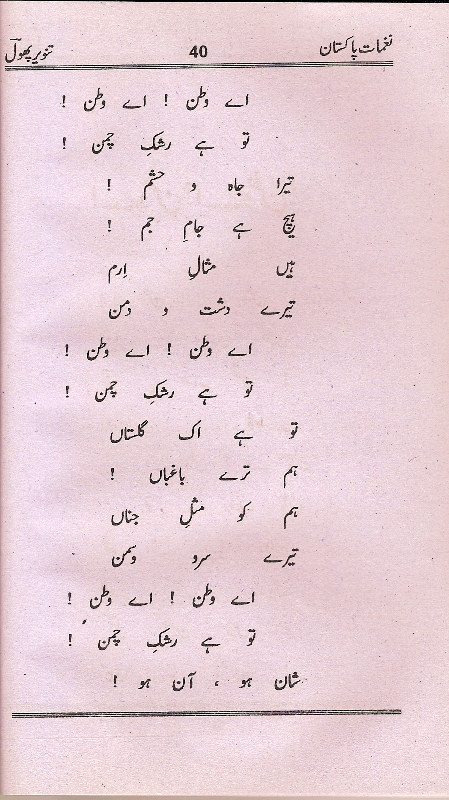 نغمات پاکستان 40 تنویر پھول
اے وطن ! اے وطن !
تو ہے رشکِ چمن !
تیرا جاہ و حشم !
ہیچ ہے جامِ جم !
ہیں مثالِ اِرم
تیرے دشت و دمن
اے وطن ! اے وطن !
تو ہے رشکِ چمن !
تو ہے اک گلستاں
ہم ترے باغباں !
ہم کو مثلِ جناں
تیرے سرو وسمن
اے وطن ! اے وطن !
تو ہے رشکِ چمن !
شان ہو ، آن ہو !